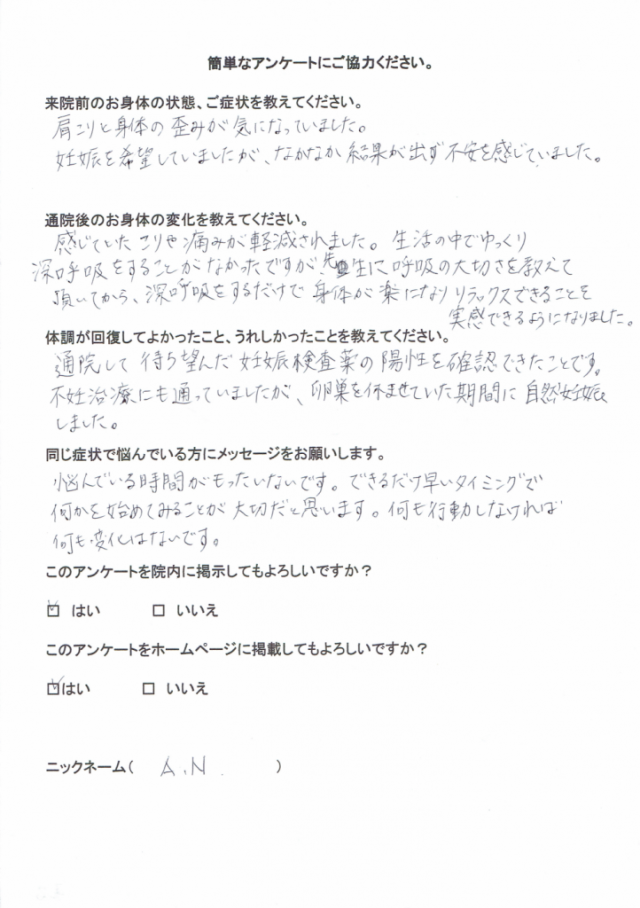 簡単なアンケートにご協力ください。
来院前のお身体の状態、ご症状を教えてください。
肩こりと身体の歪みが気になっていました。
妊娠を希望していましたが、なかなか結果が出ず不安を感じていました。
通院後のお身体の変化を教えてください。
感じていたこりや痛みが軽減されました。生活の中でゆっくり
深呼吸をすることがなかったですが先生に呼吸の大切さを教えて
頂いてから、深呼吸をするだけで身体が楽になりリラックスできることを
実感できるようになりました。
体調が回復してよかったこと、うれしかったことを教えてください。
通院して待ち望んだ妊娠検査薬の陽性を確認できたことです。
不妊治療にも通っていましたが、卵巣を休ませていた期間に自然妊娠
しました。
同じ症状で悩んでいる方にメッセージをお願いします。
悩んでいる時間がもったいないです。できるだけ早いタイミングで
何かを始めてみることが大切だと思います。何も行動しなければ
何も変化はないです。
このアンケートを院内に掲示してもよろしいですか？
☑ はい　□ いいえ
このアンケートをホームページに掲載してもよろしいですか？
☑はい　□ いいえ
ニックネーム（ A.N. ）